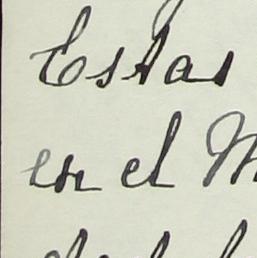 Estas
en el M